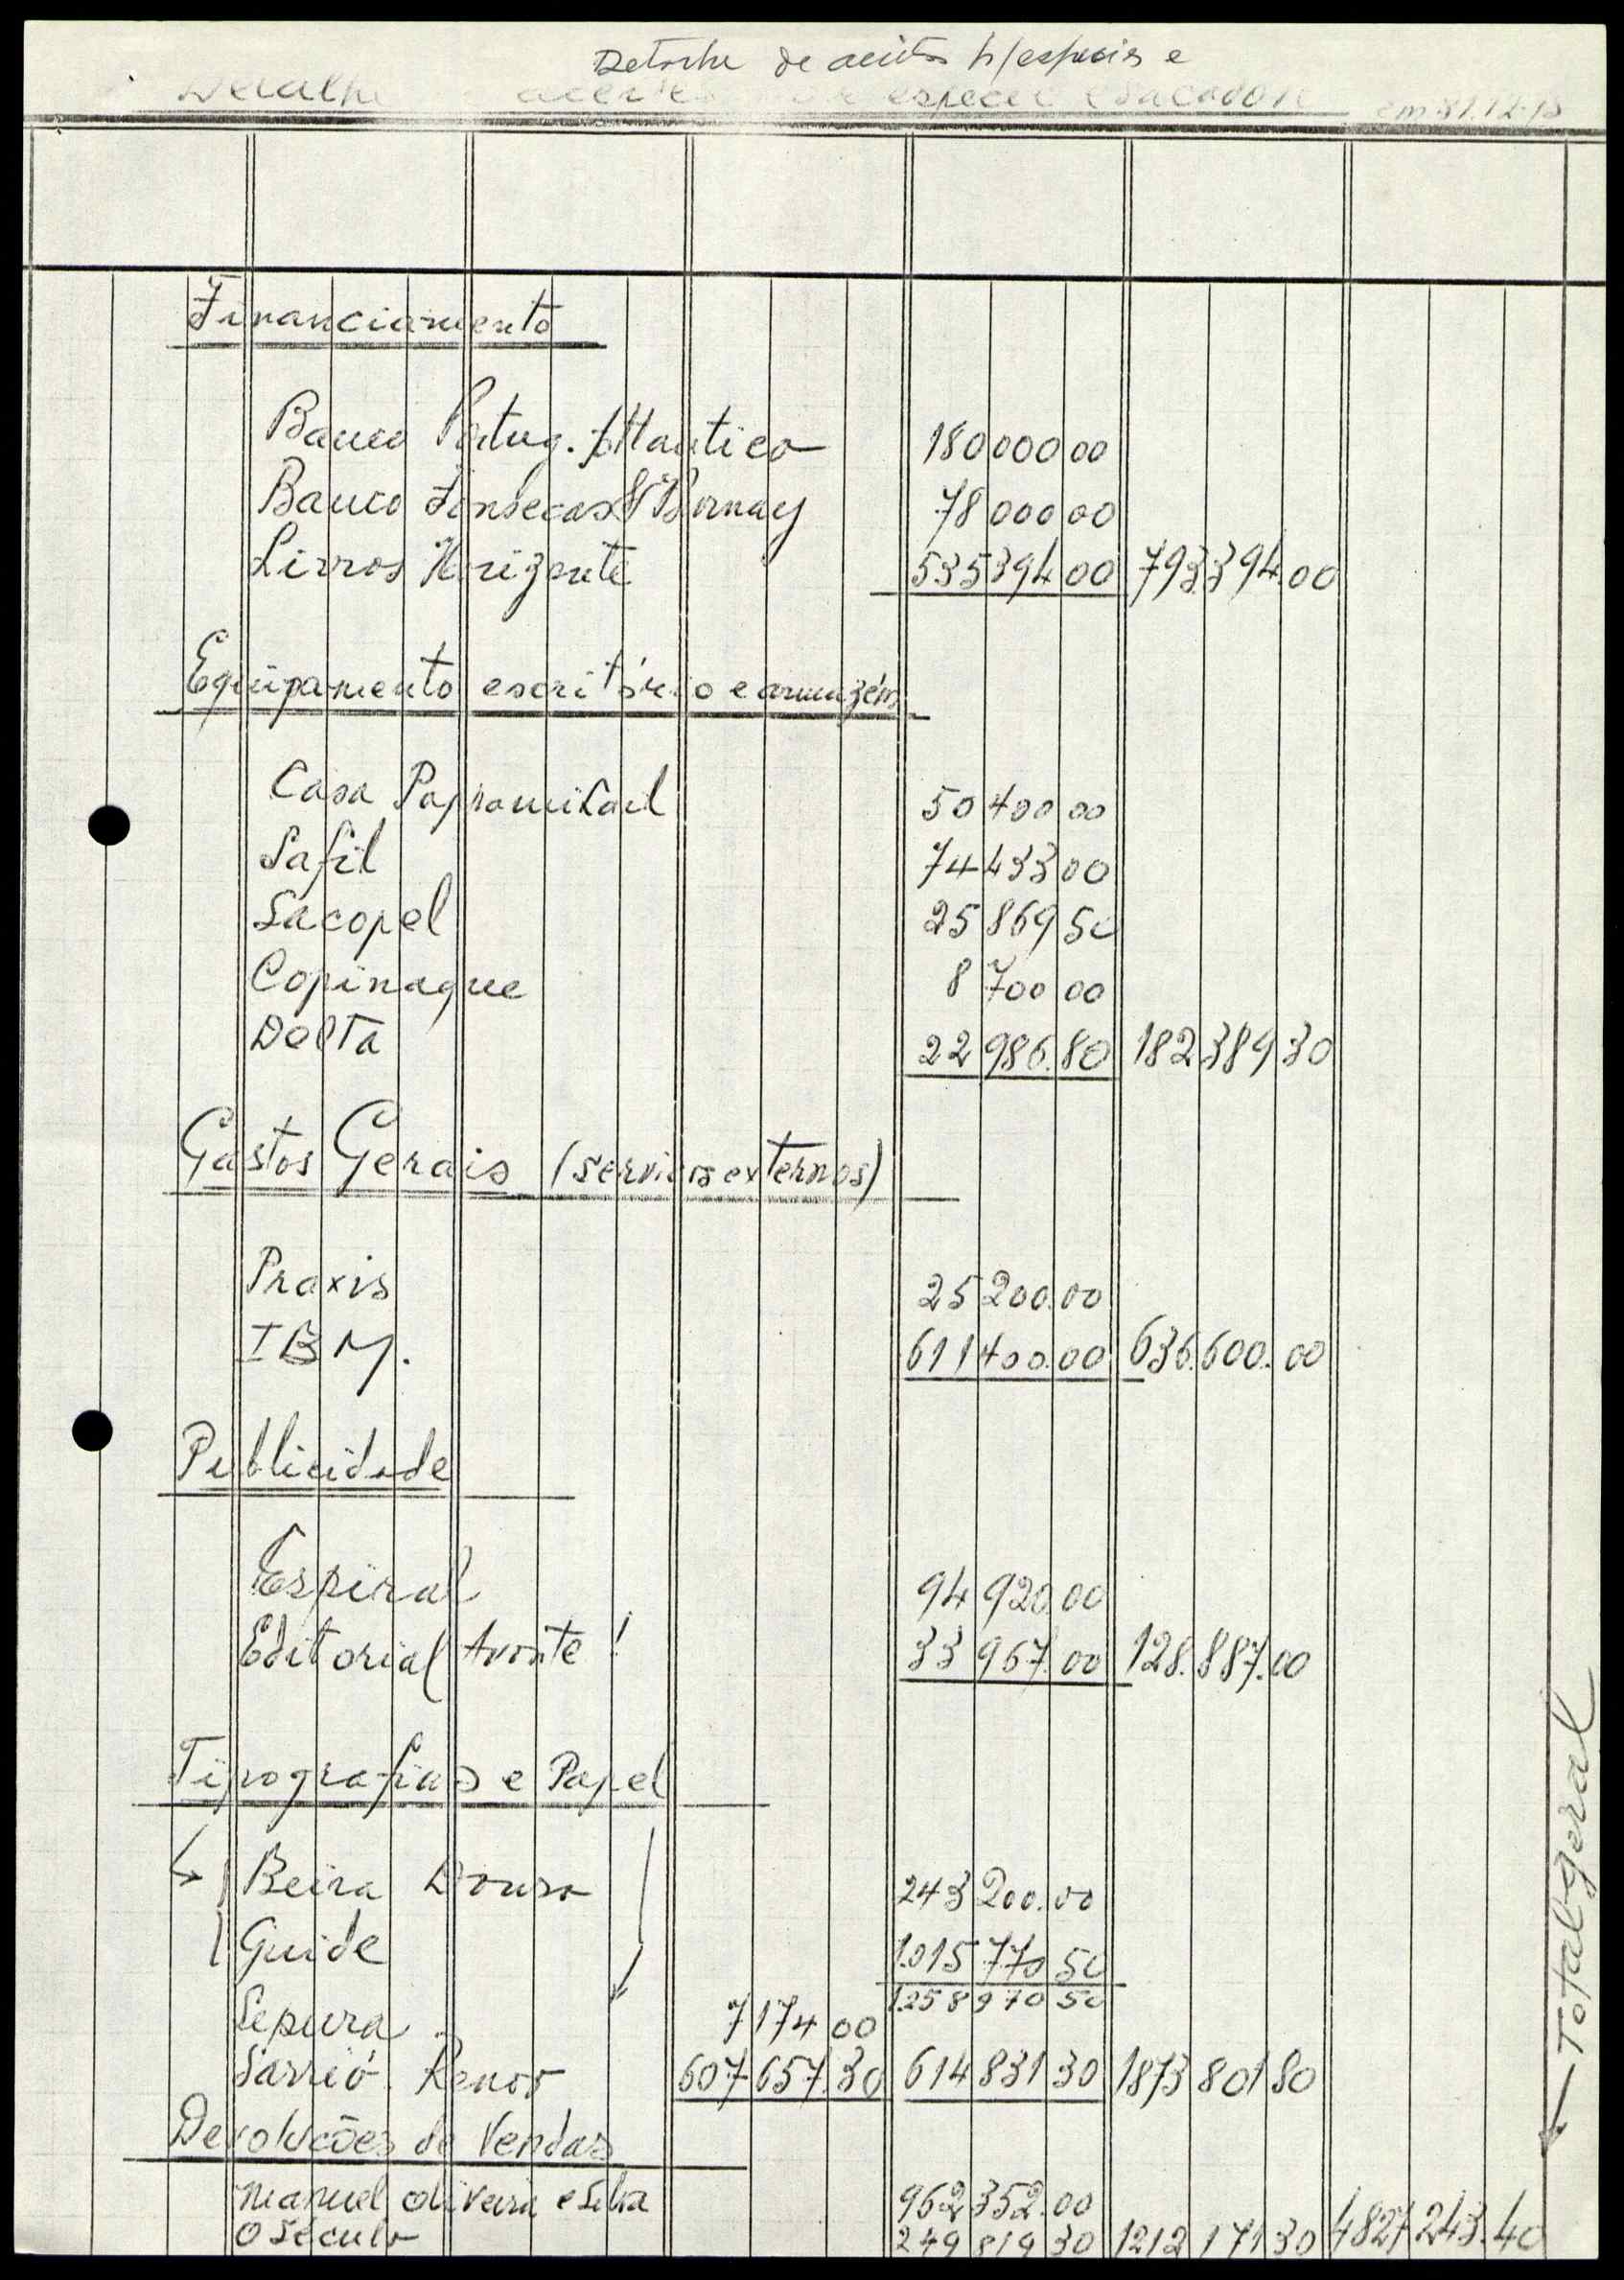 Detache de aceites n/especie e
Detalhe aceites especie (sacador em 31.12.75
Financiamento
Banco Portug. Atlantico 180 000 00
Banco Fonsecas & Burnay 78 000 00
Livros Horizonte 535 394 00 793 394.00
Equipamento escritório e armazém
Casa Papromiland 50 400 00
Safil 74 433 00
Sacopel 25 869 50
Copinaque 8 700 00
Delta 22 986.80 182 389 30
Gastos Gerais (serviços externos)
Praxis 25 200.00
IBM. 611 400.00 636.600.00
Publicidade
Espiral 94 920.00
Editorial Avante! 33 967.00 128.887.00
Tipografias e Papel
Beira Douro 243 200.00
Guide 1.015 770 50
1.258 970 50
Sepura 7 174 00
Sarrió. Renor 607 657.30 614 831 30 1873 801 80
Devoluções de Vendas
Manuel Oliveira e Silva 962 352.00
O Século 249 819 30 1212 171 30 4827 243.40
Total geral